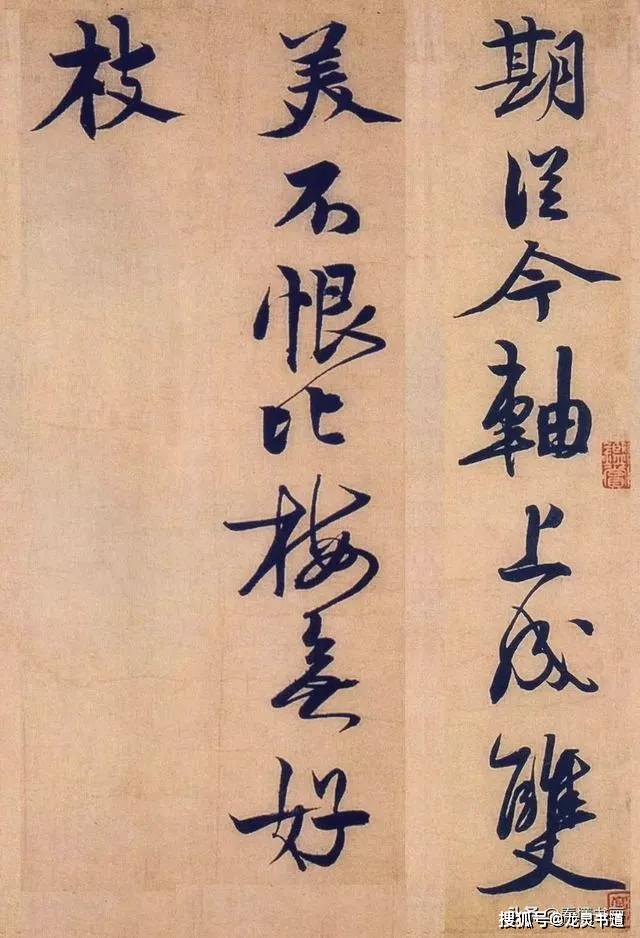 期從今軸上成雙
美不恨比梅無好
枝
搜狐号@龙灵书道